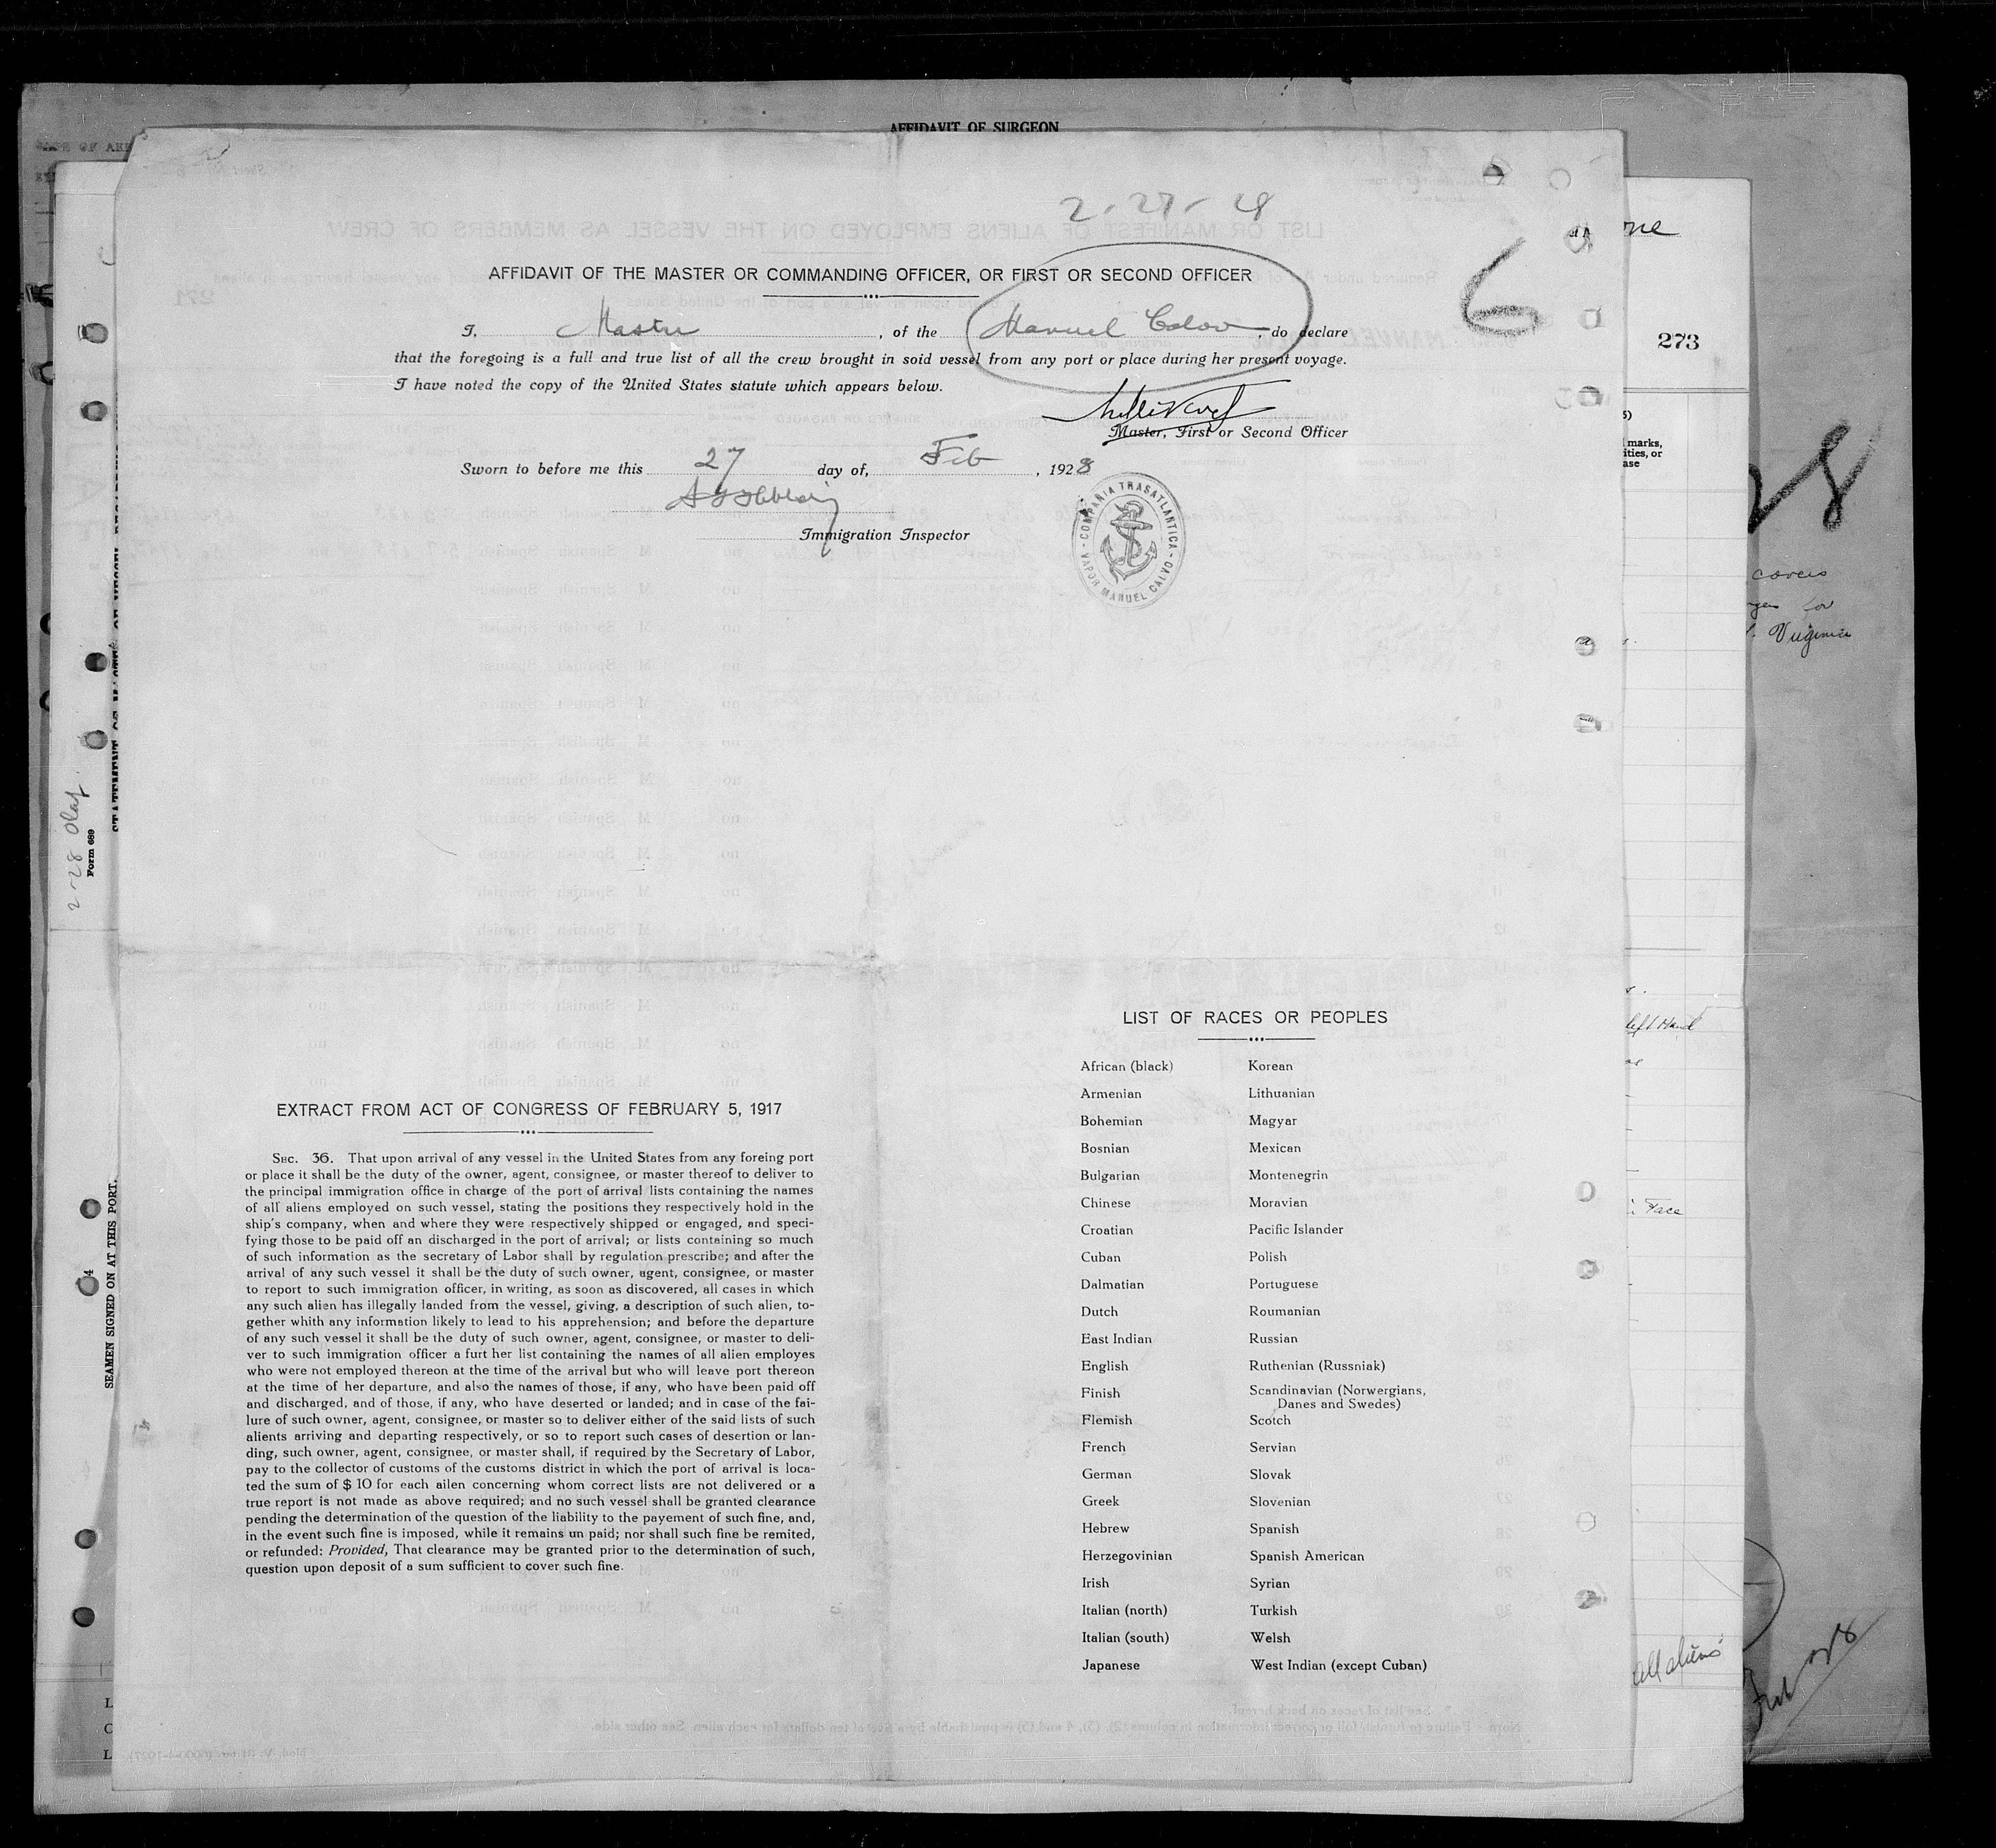 AFFIDAVIT OF SURGEON
2-27-28
AFFIDAVIT OF THE MASTER OR COMMANDING OFFICER, OR FIRST OR SECOND OFFICER
6
I, Master, of the Manuel Calvo, do declare
that the foregoing is a full and true list of all the crew brought in soid vessel from any port or place during her present voyage.
I have noted the copy of the United States statute which appears below.
Master, First or Second Officer
Sworn to before me this 27 day of, Feb, 1928
Immigration Inspector
COMPAÑIA TRASATLANTICA - VAPOR MANUEL CALVO -
273
marks,
ities, or
ase
28
covers
for
Virginia
2-28 Olaf
Form 689
SEAMEN SIGNED ON AT THIS PORT.
left Hand
Face
all aliens
EXTRACT FROM ACT OF CONGRESS OF FEBRUARY 5, 1917
SEC. 36. That upon arrival of any vessel in the United States from any foreing port
or place it shall be the duty of the owner, agent, consignee, or master thereof to deliver to
the principal immigration office in charge of the port of arrival lists containing the names
of all aliens employed on such vessel, stating the positions they respectively hold in the
ship's company, when and where they were respectively shipped or engaged, and speci-
fying those to be paid off an discharged in the port of arrival; or lists containing so much
of such information as the secretary of Labor shall by regulation prescribe; and after the
arrival of any such vessel it shall be the duty of such owner, agent, consignee, or master
to report to such immigration officer, in writing, as soon as discovered, all cases in which
any such alien has illegally landed from the vessel, giving, a description of such alien, to-
gether whith any information likely to lead to his apprehension; and before the departure
of any such vessel it shall be the duty of such owner, agent, consignee, or master to deli-
ver to such immigration officer a furt her list containing the names of all alien employes
who were not employed thereon at the time of the arrival but who will leave port thereon
at the time of her departure, and also the names of those, if any, who have been paid off
and discharged, and of those, if any, who have deserted or landed; and in case of the fai-
lure of such owner, agent, consignee, or master so to deliver either of the said lists of such
alients arriving and departing respectively, or so to report such cases of desertion or lan-
ding, such owner, agent, consignee, or master shall, if required by the Secretary of Labor,
pay to the collector of customs of the customs district in which the port of arrival is loca-
ted the sum of $ 10 for each ailen concerning whom correct lists are not delivered or a
true report is not made as above required; and no such vessel shall be granted clearance
pending the determination of the question of the liability to the payement of such fine, and,
in the event such fine is imposed, while it remains un paid; nor shall such fine be remited,
or refunded: Provided, That clearance may be granted prior to the determination of such,
question upon deposit of a sum sufficient to cover such fine.
LIST OF RACES OR PEOPLES
African (black) Korean
Armenian Lithuanian
Bohemian Magyar
Bosnian Mexican
Bulgarian Montenegrin
Chinese Moravian
Croatian Pacific Islander
Cuban Polish
Dalmatian Portuguese
Dutch Roumanian
East Indian Russian
English Ruthenian (Russniak)
Finish Scandinavian (Norwergians,
Danes and Swedes)
Flemish Scotch
French Servian
German Slovak
Greek Slovenian
Hebrew Spanish
Herzegovinian Spanish American
Irish Syrian
Italian (north) Turkish
Italian (south) Welsh
Japanese West Indian (except Cuban)